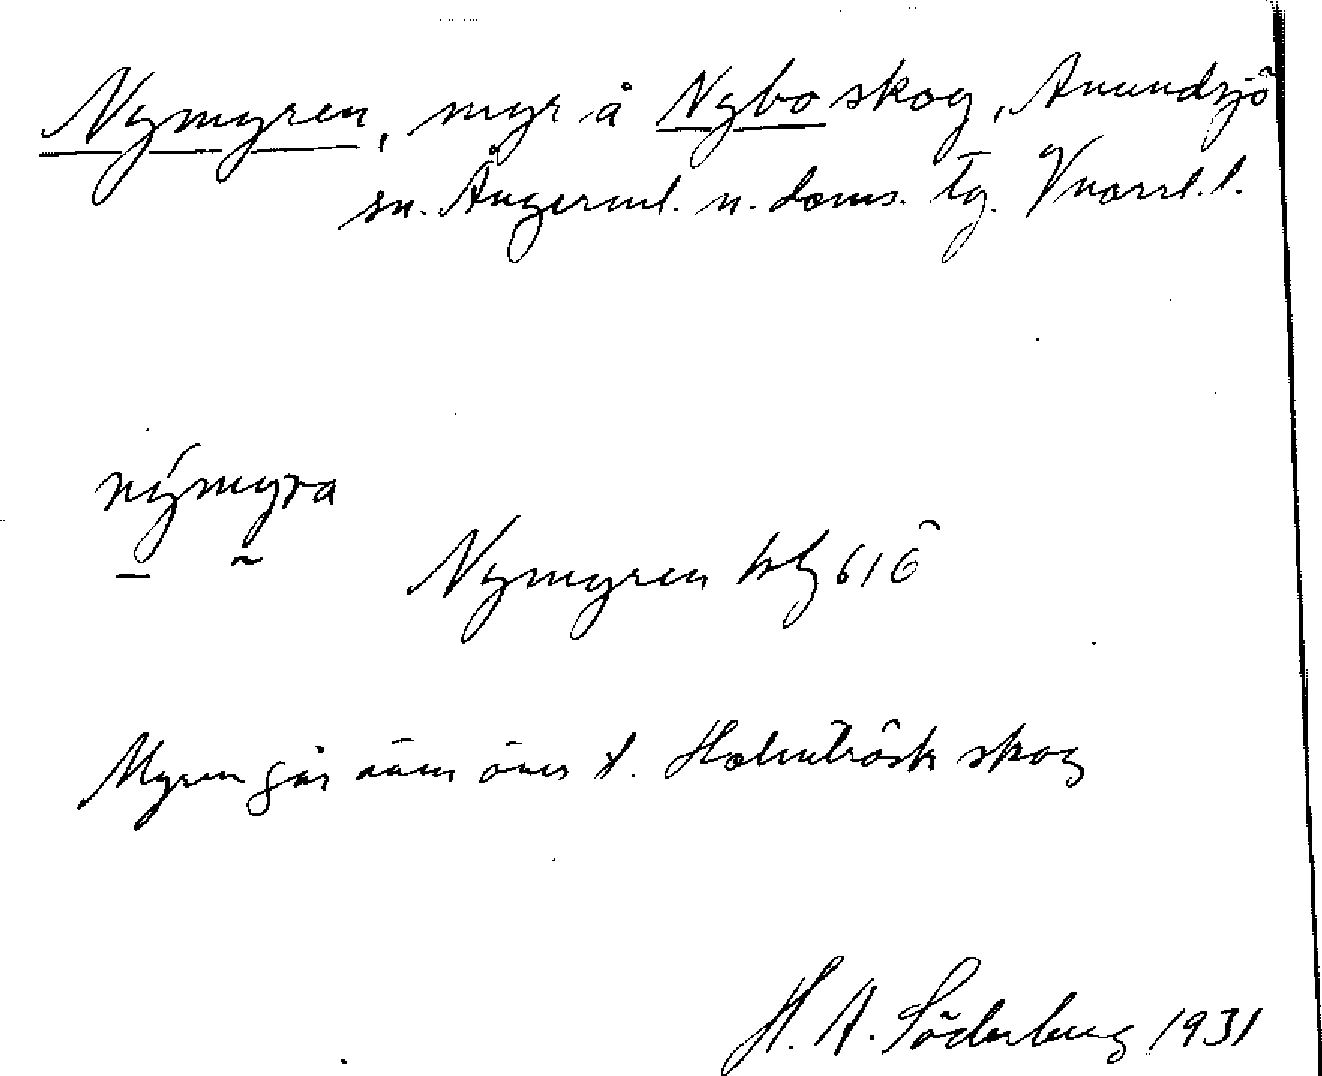 Nymyren, myr å Nybo skog, Anundsjö
sn. Ångerml. n. doms. tg. Vnorrl. l.
nýmyra
Nymyren hbl 616
Myren går även över t. Holmträsk skog
H. A. Söderberg 1931